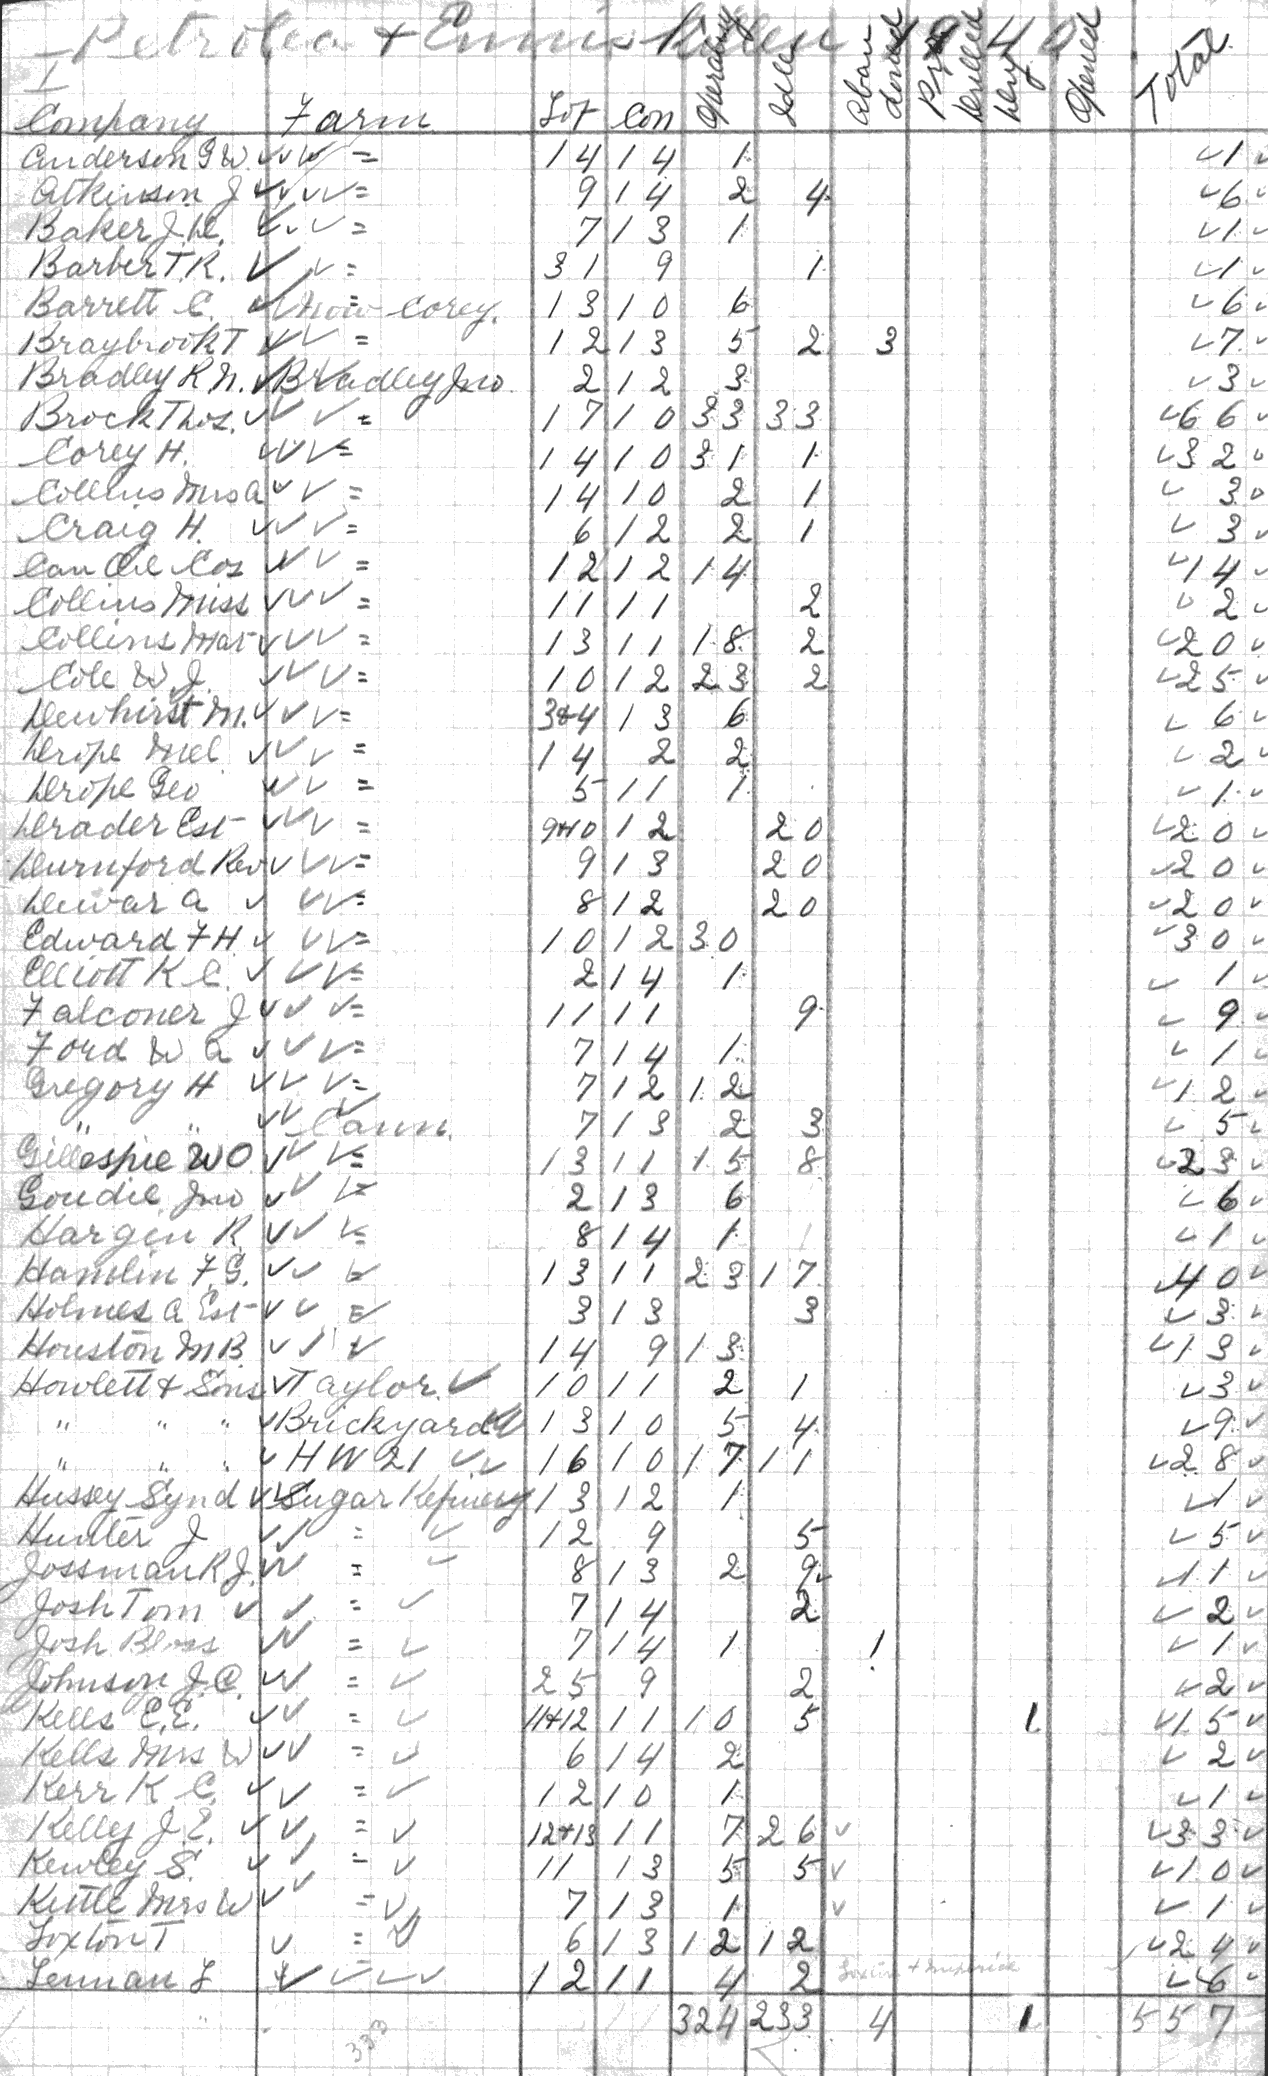 Petrolea + Enniskillen 1940
1
Company Farm Lot Con Operating Idle Abandoned Drilled Dry Opened Total
Anderson G W. = 14 14 1 1
Atkinson J = 9 14 2 4 6
Baker J. = 7 13 1 1
Barber T.R. = 31 9 1 1
Barrett C. now Corey. 13 10 6 6
Braybrook T = 12 13 5 2 3 7
Bradley R N. Bradley Jno 2 12 3 3
Brock Thos. = 17 10 33 33 66
Corey H. = 14 10 31 1 32
Collins Mrs A = 14 10 2 1 3
Craig H. = 6 12 2 1 3
Can Oil Cos = 12 12 14 14
Collins Miss = 11 11 2 2
Collins Mat = 13 11 18 2 20
Cole W J. = 10 12 23 2 25
Dewhirst M. = 3+4 13 6 6
Drope Mel = 14 2 2 2
Drope Geo = 5 11 1 1
Drader Est = 9+10 12 20 20
Durnford Rev = 9 13 20 20
Dewar A = 8 12 20 20
Edward F H. = 10 12 30 30
Elliott K C. = 2 14 1 1
Falconer J = 11 11 9 9
Ford W A = 7 14 1 1
Gregory H = 7 12 12 12
" " 7 13 2 3 5
Gillespie W O = 13 11 15 8 23
Goudie Jno = 2 13 6 6
Hargin R = 8 14 1 1
Hamlin F. G. = 13 11 23 17 40
Holmes A Est = 3 13 3 3
Houston M B. = 14 9 13 13
Howlett + Sons Taylor. 10 11 2 1 3
" " " Brickyard 13 10 5 4 9
" " " H W 21 16 10 17 11 28
Hussey Synd Sugar Refinery 13 12 1 1
Hunter J = 12 9 5 5
Jossman R J. = 8 13 2 9 11
Josh Tom = 7 14 2 2
Josh Bloss = 7 14 1 1 1
Johnson J. C. = 25 9 2 2
Kells E. E. = 11+12 11 10 5 1 15
Kells Mrs W = 6 14 2 2
Kerr K C. = 12 10 1 1
Kelly J. E. = 12+13 11 7 26 33
Kewley S. = 11 13 5 5 10
Kettle Mrs W = 7 13 1 1
Loxton T = 6 13 12 12 24
Lennan L 12 11 4 2 6
324 233 4 1 557
333